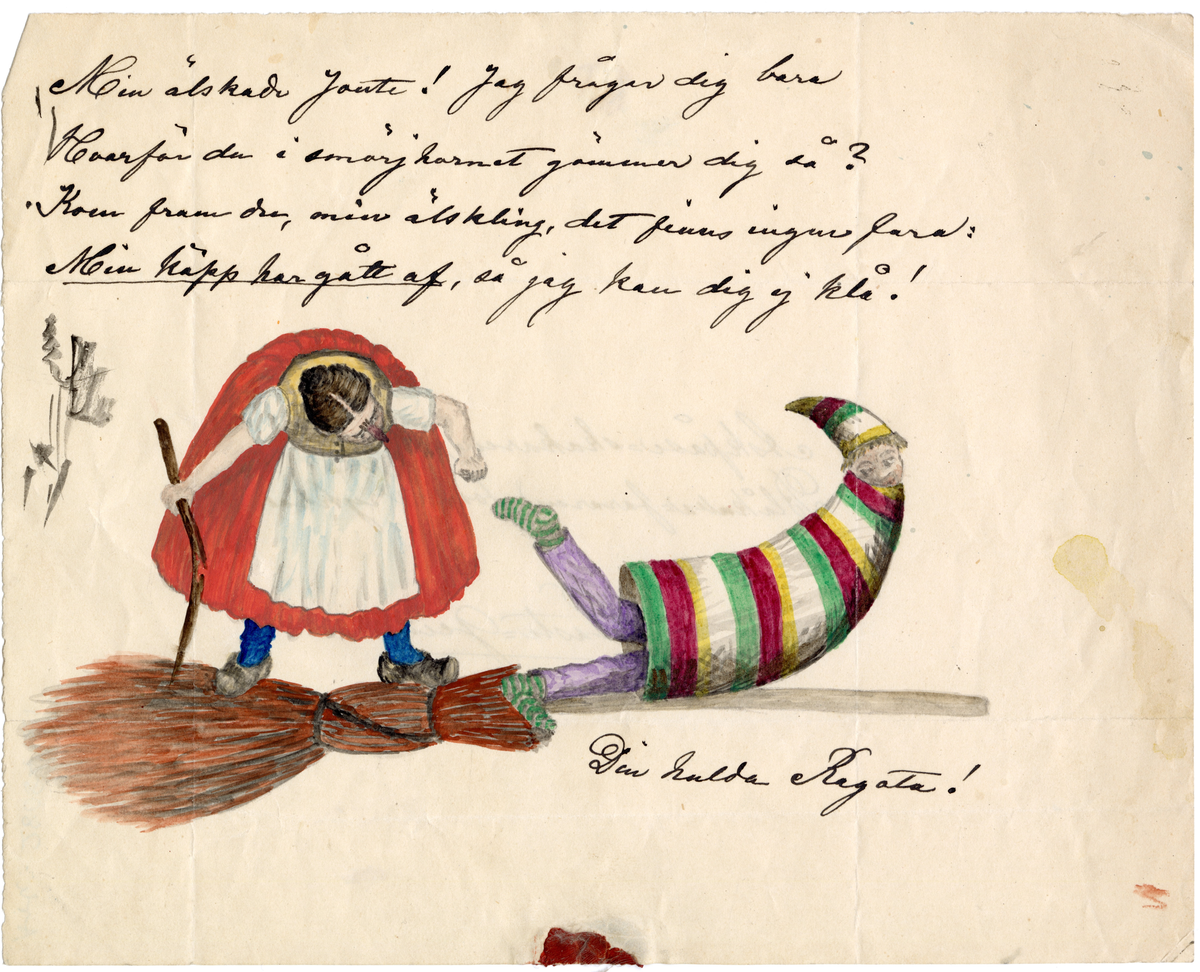 Min älskade Jonte! Jag frågar dig bara
Hvarför du i smörjhornet gömmer dig så?
Kom fram du, min älskling, det finns ingen fara:
Min käpp har gått af, så jag kan dig ej klå!
Din hulda Ragata!